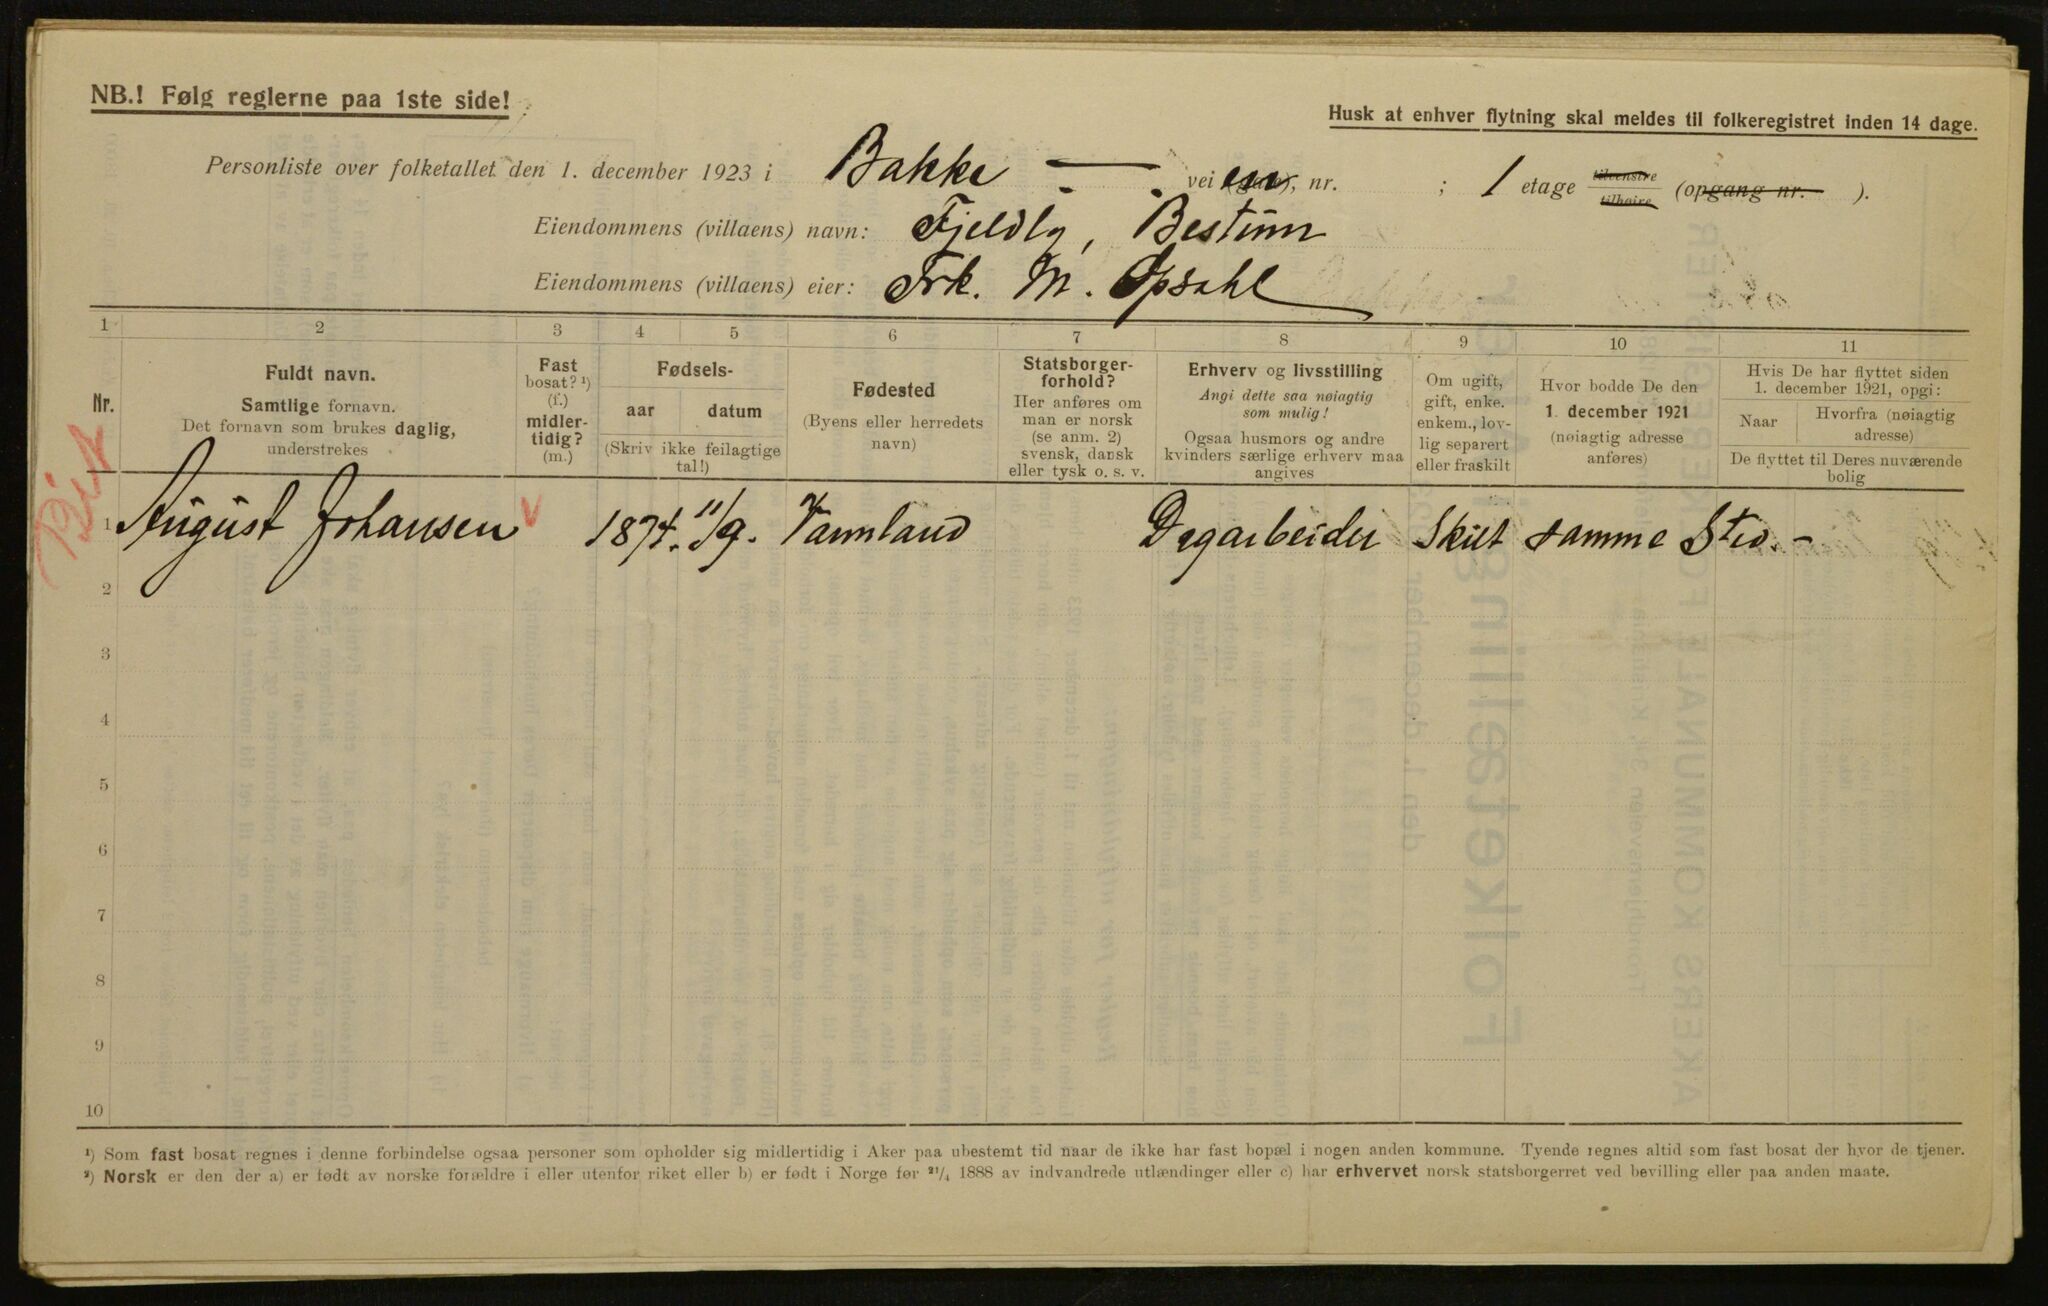 NB.! Følg reglerne paa 1ste side!
Husk at enhver flytning skal meldes til folkeregistret inden 14 dage.
Personliste over folketallet den 1. december 1923 i Bakke - . - veien (gate), nr. ; 1 etage tilvenstre tilhøire (opgang nr. ).
Eiendommens (villaens) navn: Fjeldly, Bestum
Eiendommens (villaens) eier: Frk. M. Opsahl
1 2 3 4 5 6 7 8 9 10 11
Nr.
Fuldt navn.
Samtlige fornavn.
Det fornavn som brukes daglig,
understrekes
Fast
bosat? ¹)
(f.)
midler-
tidig?
(m.)
Fødsels-
aar datum
(Skriv ikke feilagtige
tal!)
Fødested
(Byens eller herredets
navn)
Statsborger-
forhold?
Her anføres om
man er norsk
(se anm. 2)
svensk, dansk
eller tysk o. s. v.
Erhverv og livsstilling
Angi dette saa nøiagtig
som mulig!
Ogsaa husmors og andre
kvinders særlige erhverv maa
angives
Om ugift,
gift, enke.
enkem., lov-
lig separert
eller fraskilt
Hvor bodde De den
1. december 1921
(nøiagtig adresse
anføres)
Hvis De har flyttet siden
1. december 1921, opgi:
Naar Hvorfra (nøiagtig
adresse)
De flyttet til Deres nuværende
bolig
1 August Johansen v 1874. 11/9. Varmland Dagarbeider Skilt samme Sted. -
2
3
4
5
6
7
8
9
10
¹) Som fast bosat regnes i denne forbindelse ogsaa personer som opholder sig midlertidig i Aker paa ubestemt tid naar de ikke har fast bopæl i nogen anden kommune. Tyende regnes altid som fast bosat der hvor de tjener.
²) Norsk er den der a) er født av norske forældre i eller utenfor riket eller b) er født i Norge før ²¹/₄ 1888 av indvandrede utlændinger eller c) har erhvervet norsk statsborgerret ved bevilling eller paa anden maate.